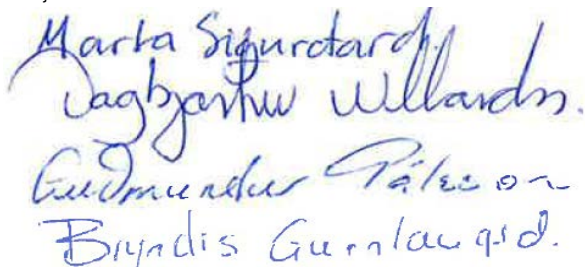 Marta Sigurðard.
Dagbjartur Willardss.
Guðmundur Pálsson
Bryndís Gunnlaugsd.